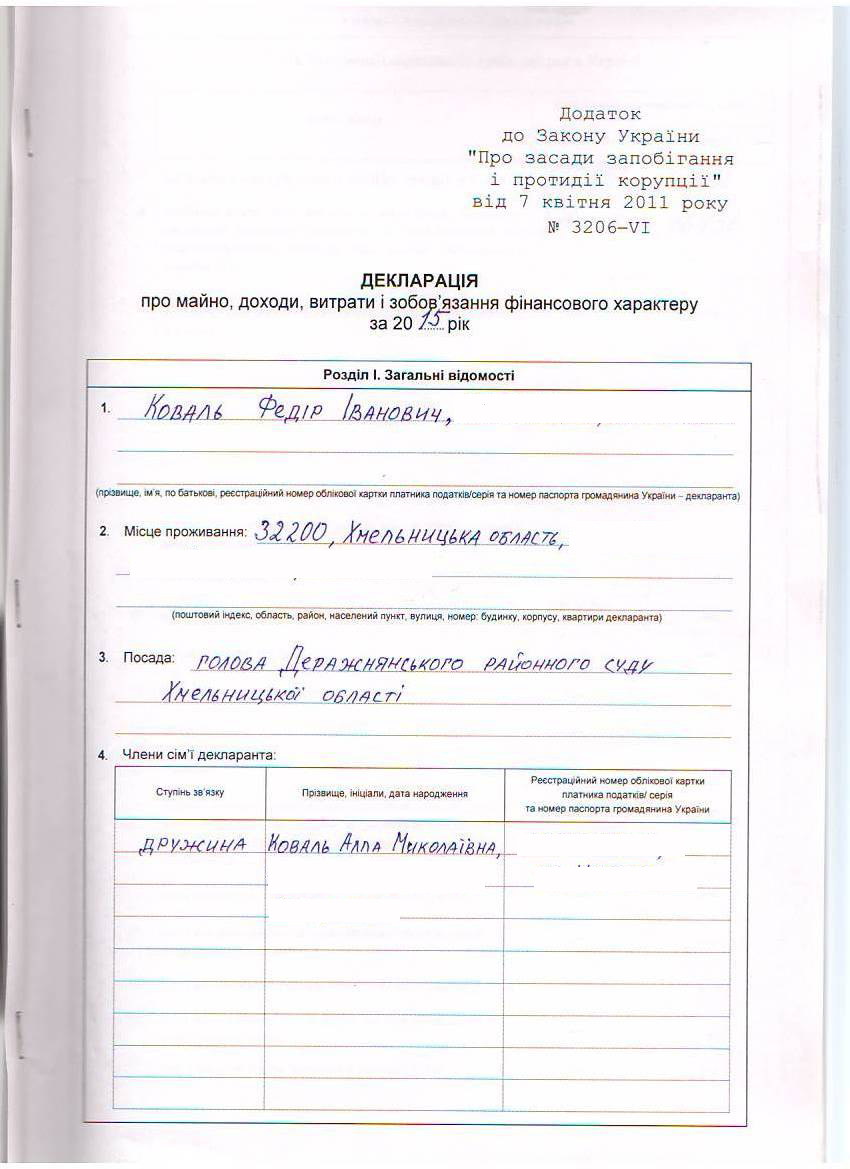 Додаток
до Закону України
"Про засади запобігання
і протидії корупції"
від 7 квітня 2011 року
№ 3206-VI
ДЕКЛАРАЦІЯ
про майно, доходи, витрати і зобов'язання фінансового характеру
за 2015 рік
Розділ I. Загальні відомості
1. Коваль Федір Іванович,
(прізвище, ім'я, по батькові, реєстраційний номер облікової картки платника податків/серія та номер паспорта громадянина України – декларанта)
2. Місце проживання: 32200, Хмельницька область,
(поштовий індекс, область, район, населений пункт, вулиця, номер: будинку, корпусу, квартири декларанта)
3. Посада: голова Деражнянського районного суду
Хмельницької області
4. Члени сім'ї декларанта:
Ступінь зв'язку
Прізвище, ініціали, дата народження
Реєстраційний номер облікової картки
платника податків/ серія
та номер паспорта громадянина України
дружина Коваль Алла Миколаївна,